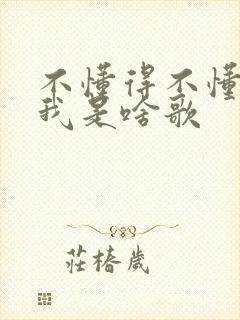 不懂得不懂
我是啥歌
莊椿歲